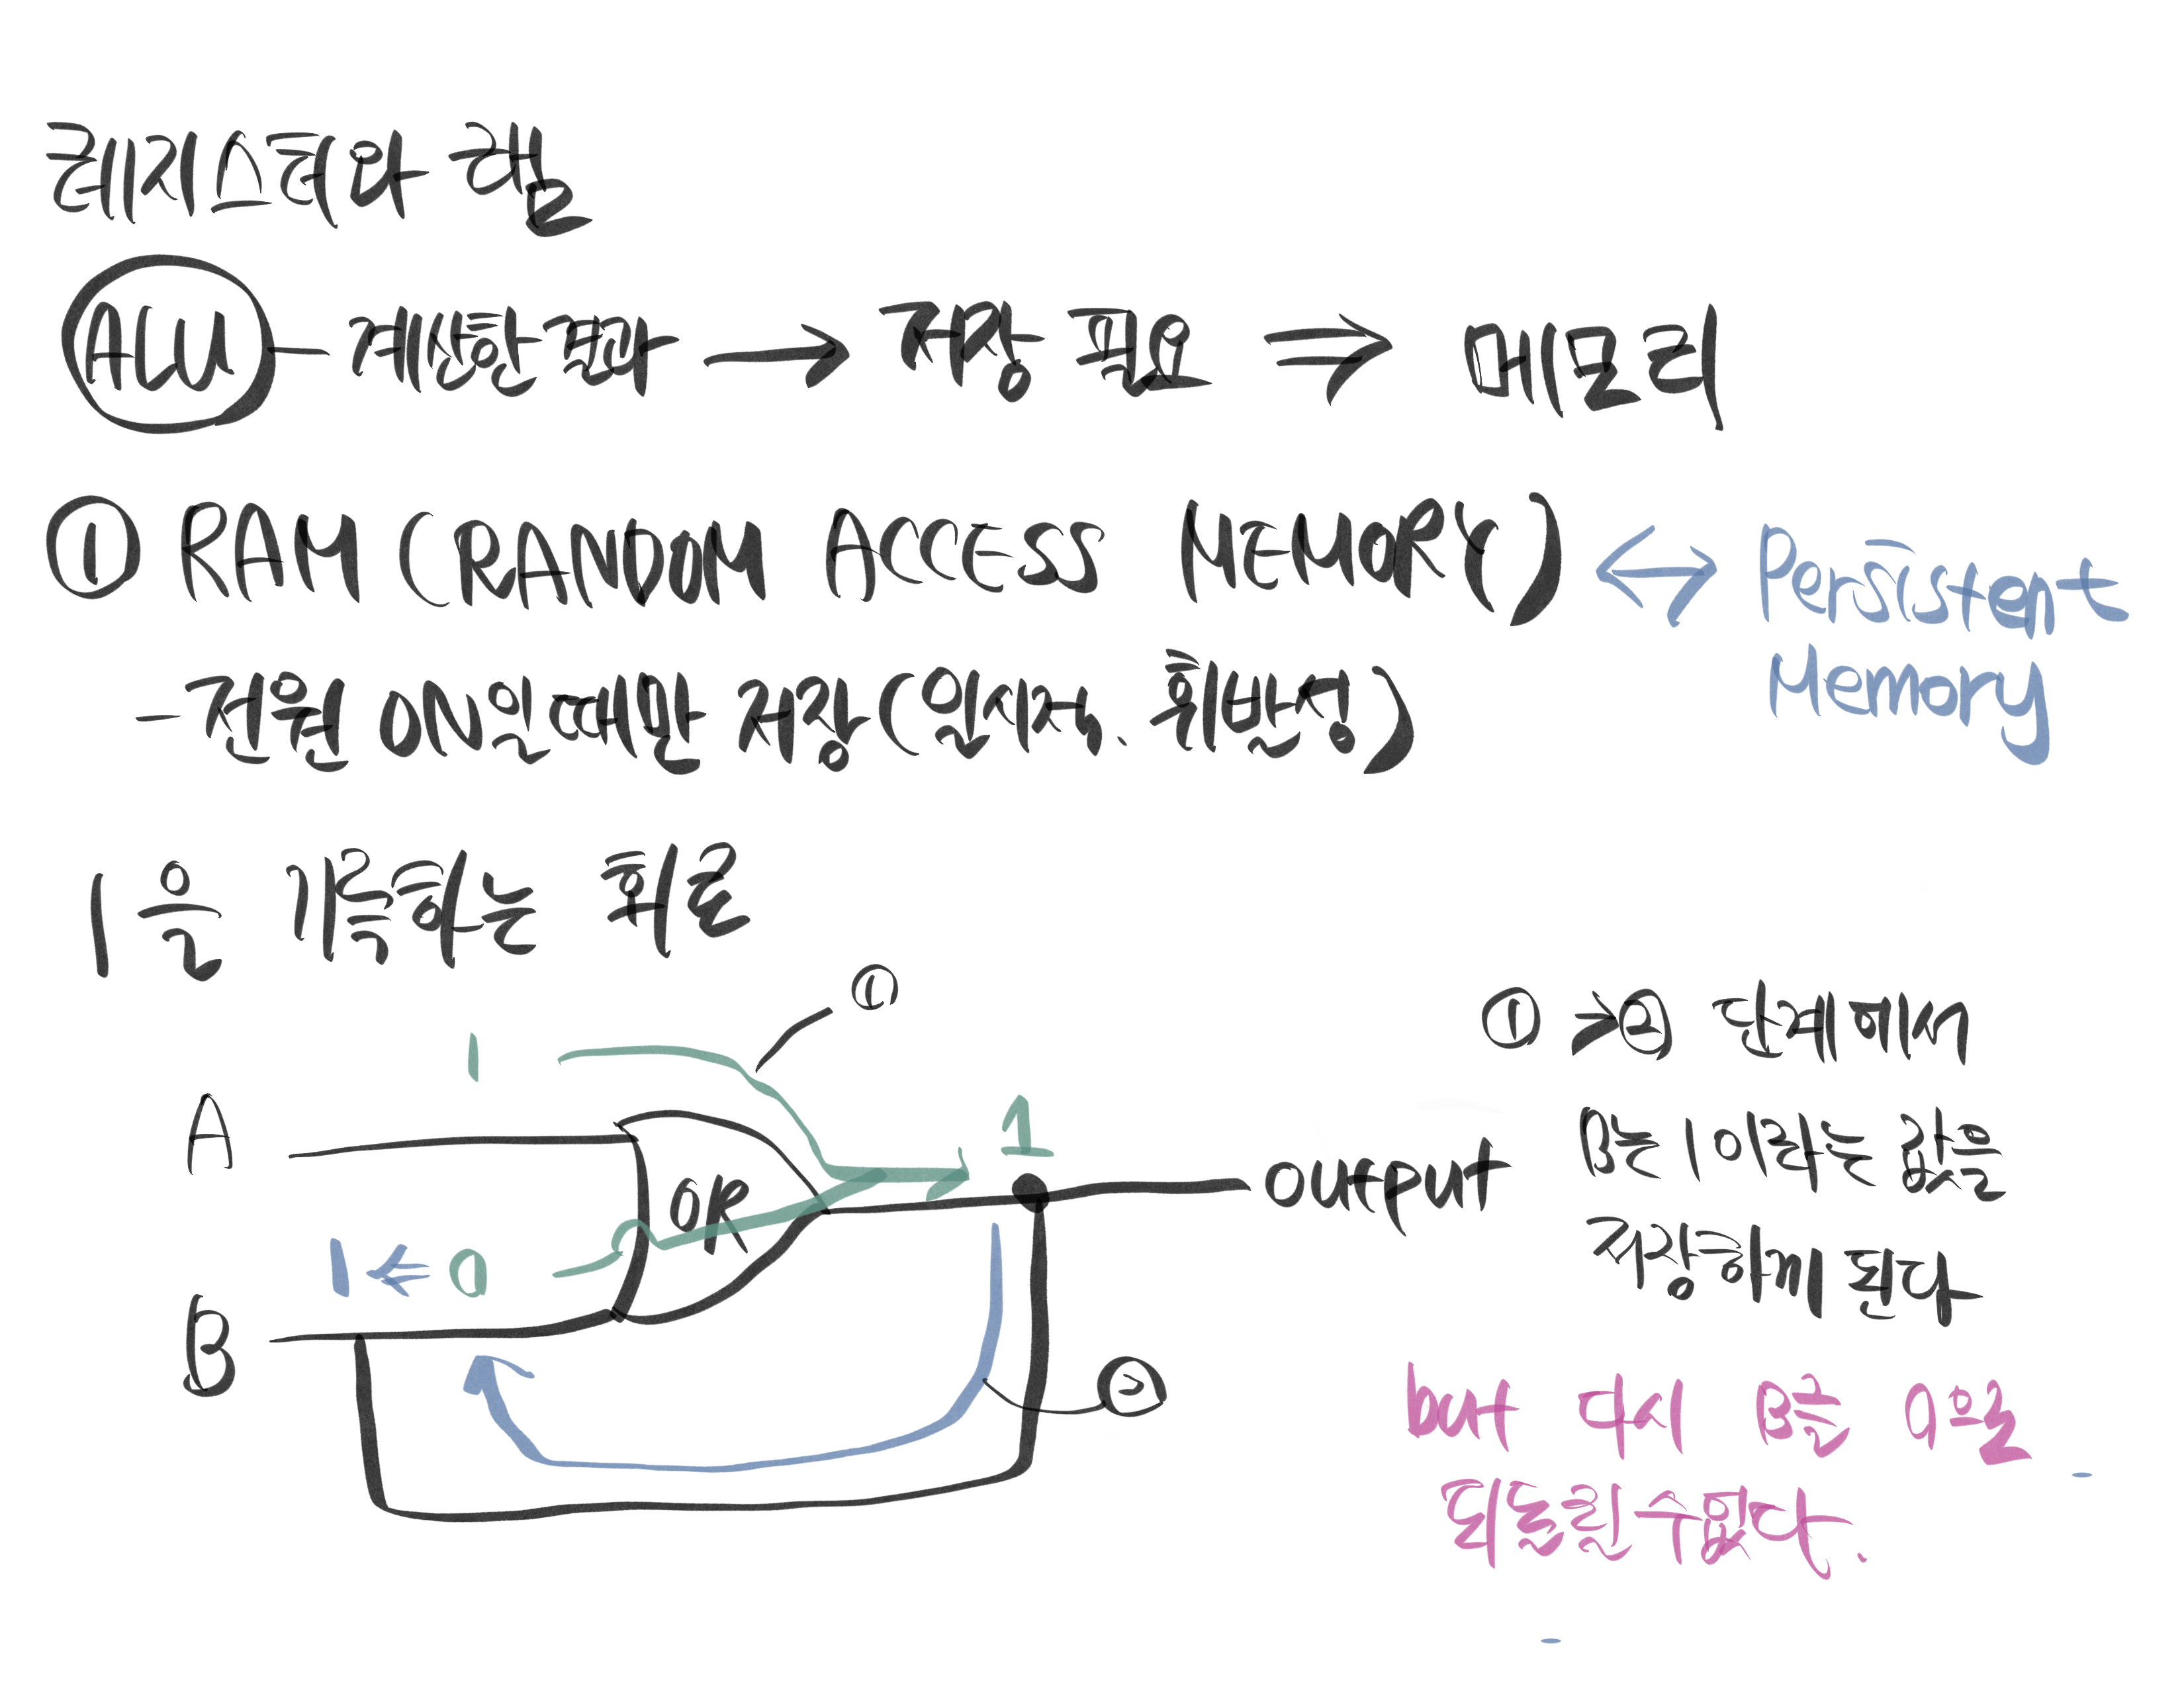 레지스터와 램
ALU — 계산한 결과 → 저장 필요 ⇒ 메모리
① RAM (RANDOM ACCESS MEMORY) ↔ Persistent Memory
- 전원 ON일때만 저장 (일시저, 휘발성)
1을 기록하는 회로
①
1
A
1
OR
output
1 ← 0
B
②
① → ② 단계에서
B는 1이라는 값을
저장하게 된다
but 다시 B를 0으로
되돌릴 수 없다.